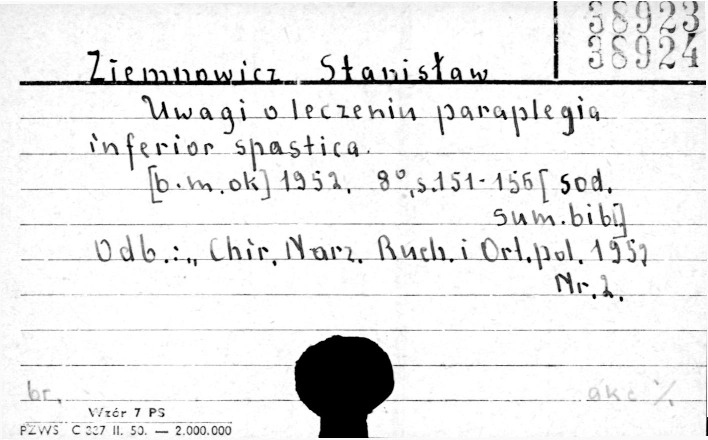 38923
38924
Ziemnowicz Stanisław
Uwagi o leczeniu paraplegia
inferior spastica.
[b.m.ok] 1952. 8°, s.151-156 [sod.
sum.bib.]
Odb.: „Chir. Narz. Ruch. i Ort. pol. 1952
Nr. 2.
br.
akc %
Wzór 7 PS
PZWS C 337 II. 50. — 2.000.000